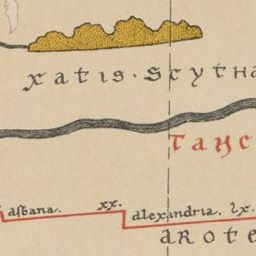 xatis · scytha
TAHC
asbana. xx. alexandria. lx.
aROTE